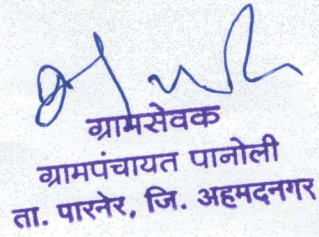 ग्रामसेवक
ग्रामपंचायत पानोली
ता. पारनेर, जि. अहमदनगर